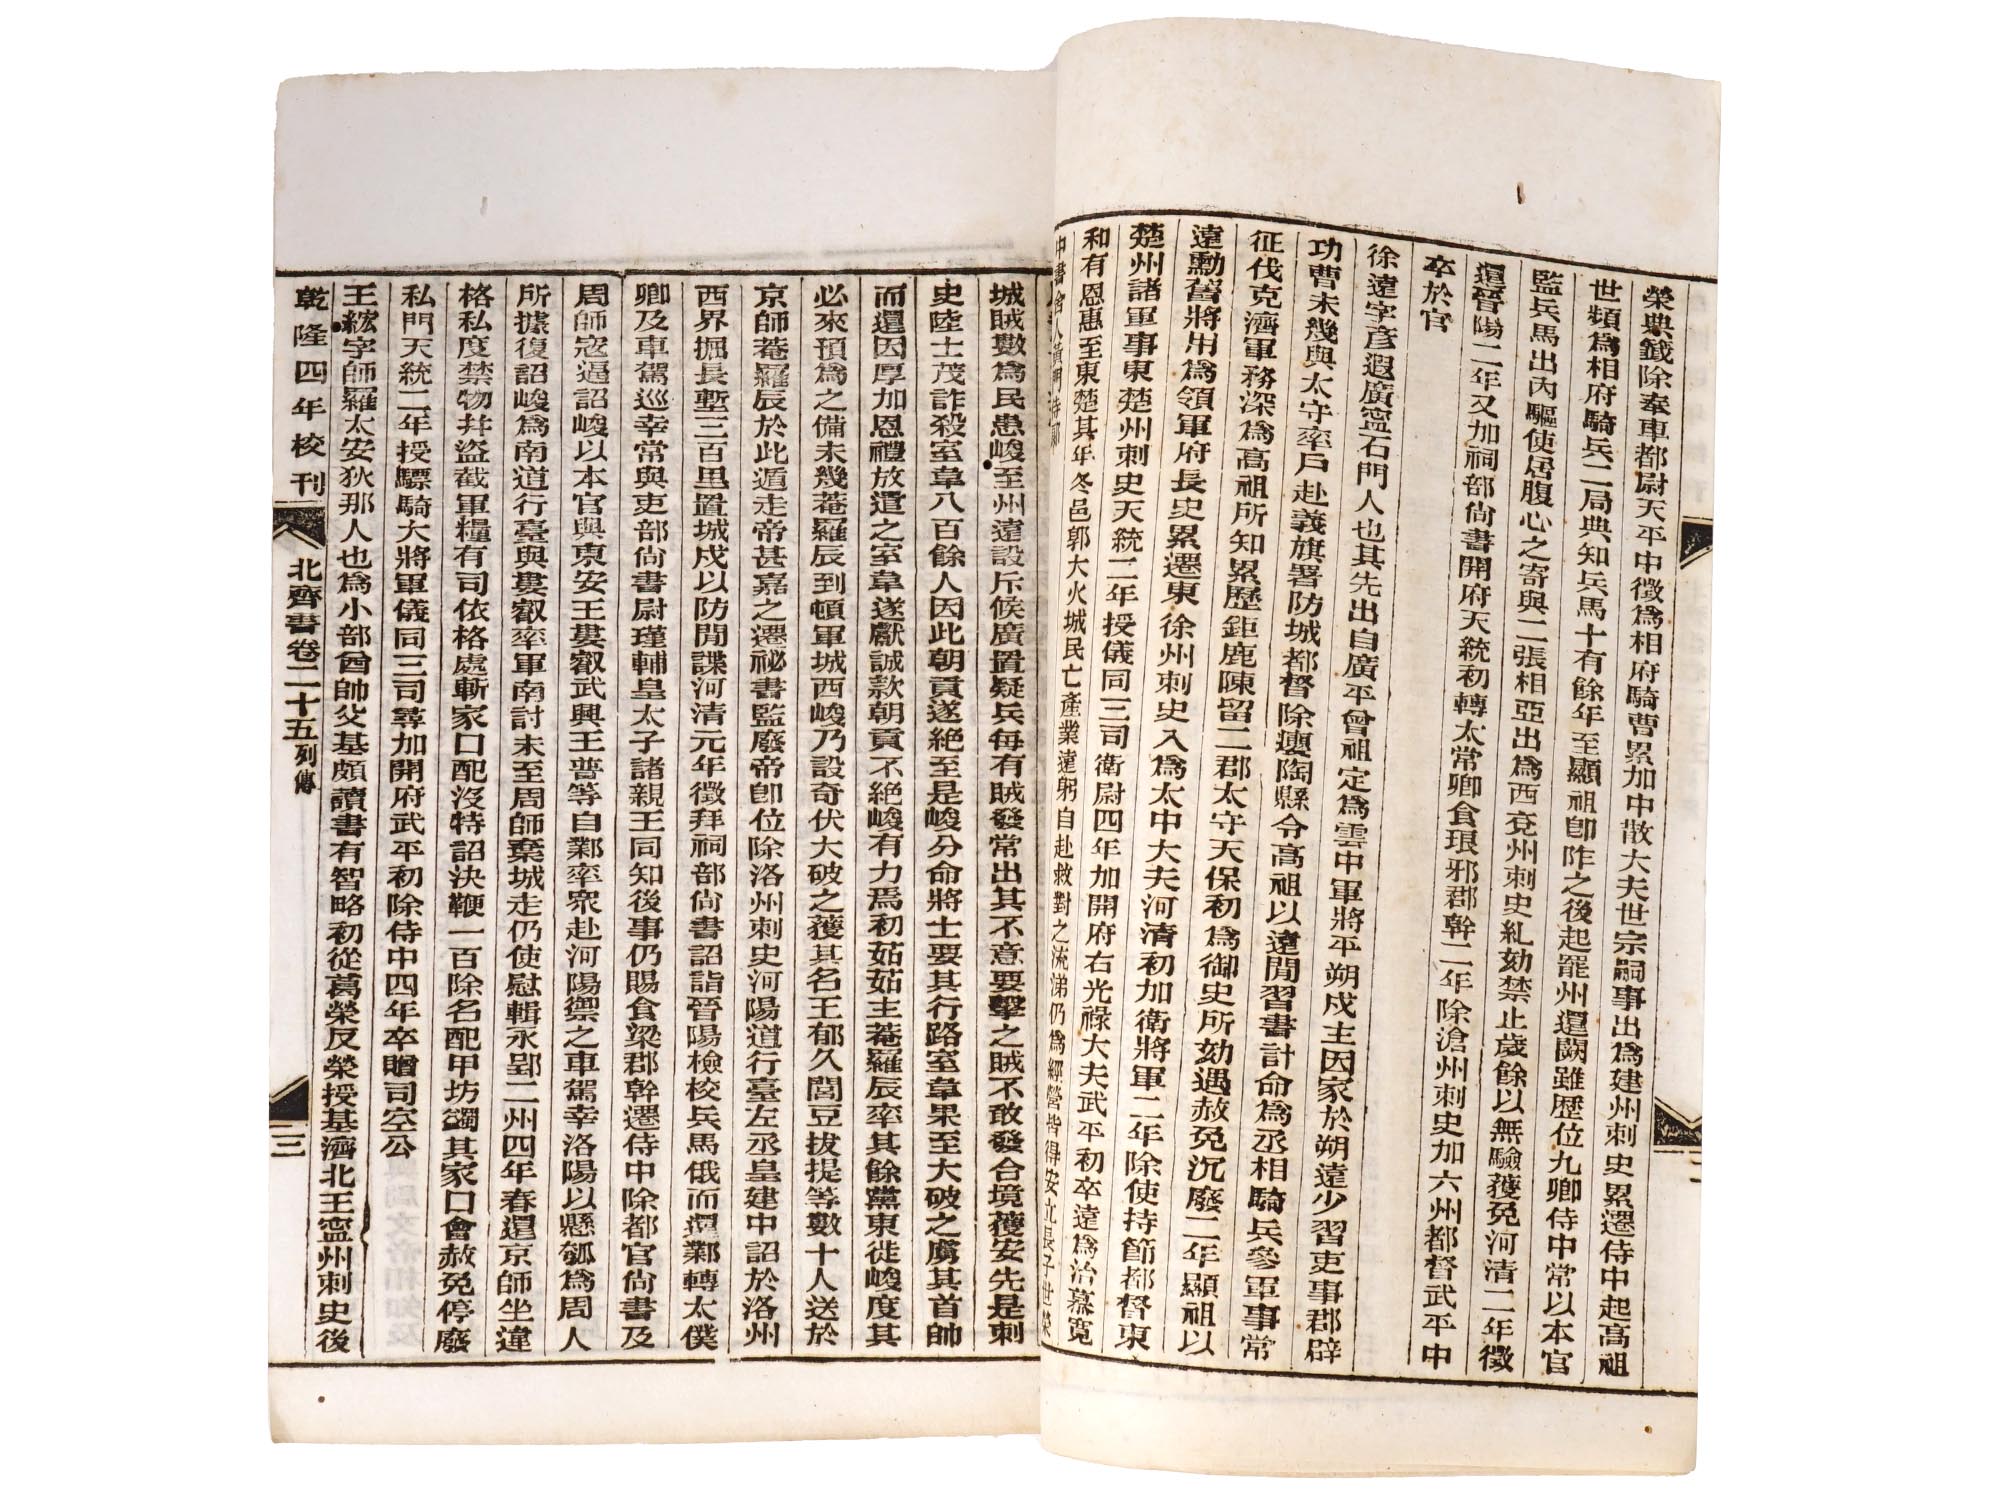 榮典籤除奉車都尉天平中徵爲相府騎曹累加中散大夫世宗嗣事出爲建州刺史累遷侍中起高祖
世頻爲相府騎兵二局典知兵馬十有餘年至顯祖卽阼之後起罷州還闕雖歷位九卿侍中常以本官
監兵馬出內驅使居腹心之寄與二張相亞出爲西兗州刺史糺劾禁止歲餘以無驗獲免河清二年徵
還晉陽二年又加祠部尙書開府天統初轉太常卿食琅邪郡幹二年除滄州刺史加六州都督武平中
卒於官
徐遠字彥遐廣寧石門人也其先出自廣平曾祖定爲雲中軍將平朔戍主因家於朔遠少習吏事郡辟
功曹未幾與太守率戶赴義旗署防城都督除癭陶縣令高祖以遠閒習書計命爲丞相騎兵參軍事常
征伐克濟軍務深爲高祖所知累歷鉅鹿陳留二郡太守天保初爲御史所劾遇赦免沉廢二年顯祖以
遠勳舊將用爲領軍府長史累遷東徐州刺史入爲太中大夫河清初加衛將軍二年除使持節都督東
楚州諸軍事東楚州刺史天統二年授儀同三司衛尉四年加開府右光祿大夫武平初卒遠爲治慕寬
和有恩惠至東楚其年冬邑郭大火城民亡產業遠躬自赴救對之流涕仍爲經營皆得安立長子世榮
中書舍人黃門侍郎
城賊數爲民患峻至州遠設斥候廣置疑兵每有賊發常出其不意要擊之賊不敢發合境獲安先是刺
史陸士茂詐殺室韋八百餘人因此朝貢遂絕至是峻分命將士要其行路室韋果至大破之虜其首帥
而還因厚加恩禮放遣之室韋遂獻誠款朝貢不絕峻有力焉初茹茹主菴羅辰率其餘黨東徙峻度其
必來預爲之備未幾菴羅辰到頓軍城西峻乃設奇伏大破之獲其名王郁久閭豆拔提等數十人送於
京師菴羅辰於此遁走帝甚嘉之遷祕書監廢帝卽位除洛州刺史河陽道行臺左丞皇建中詔於洛州
西界掘長塹三百里置城戍以防閒諜河清元年徵拜祠部尙書詔詣晉陽檢校兵馬俄而還鄴轉太僕
卿及車駕巡幸常與吏部尙書尉瑾輔皇太子諸親王同知後事仍賜食梁郡幹遷侍中除都官尙書及
周師寇逼詔峻以本官與東安王婁叡武興王普等自鄴率眾赴河陽禦之車駕幸洛陽以懸瓠爲周人
所據復詔峻爲南道行臺與婁叡率軍南討未至周師棄城走仍使慰輯永郢二州四年春還京師坐違
格私度禁物幷盜截軍糧有司依格處斬家口配沒特詔決鞭一百除名配甲坊蠲其家口會赦免停廢
私門天統二年授驃騎大將軍儀同三司尋加開府武平初除侍中四年卒贈司空公
王紘字師羅太安狄那人也爲小部酋帥父基頗讀書有智略初從葛榮反榮授基濟北王寧州刺史後
乾隆四年校刊
北齊書卷二十五列傳
三